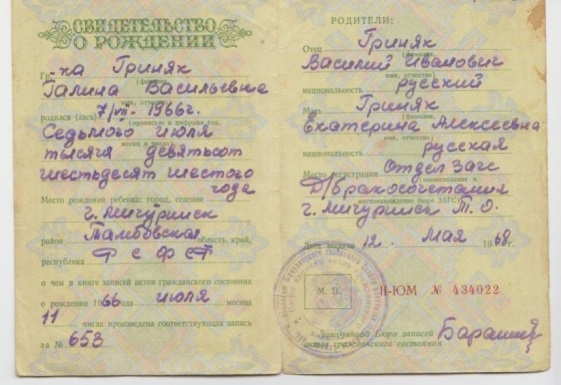 СВИДЕТЕЛЬСТВО
О РОЖДЕНИИ
Гр-ка Гриняк
Галина Васильевна
родился (лась) 7/VII- 1966г.
Седьмого июля
тысяча девятьсот
шестьдесят шестого
года
Место рождения ребенка: город, селение
г. Мичуринск
район Тамбовская область, край,
республика РСФСР
о чем в книге записей актов гражданского состояния
о рождении 1966 года июля месяца
11 числа произведена соответствующая запись
за № 653
РОДИТЕЛИ:
Отец Гриняк
(фамилия,
Василий Иванович
имя, отчество)
национальность русский
Мать Гриняк
(фамилия,
Екатерина Алексеевна
имя, отчество)
национальность русская
Место регистрации Отдел Загс
(наименование и
Д/Бракосочетания
местонахождение бюро ЗАГСа)
г. Мичуринск Т.О.
Дата выдачи 12. мая 1968г.
М. П.
II-ЮМ № 434022
Заведующий бюро записей
актов гражданского состояния